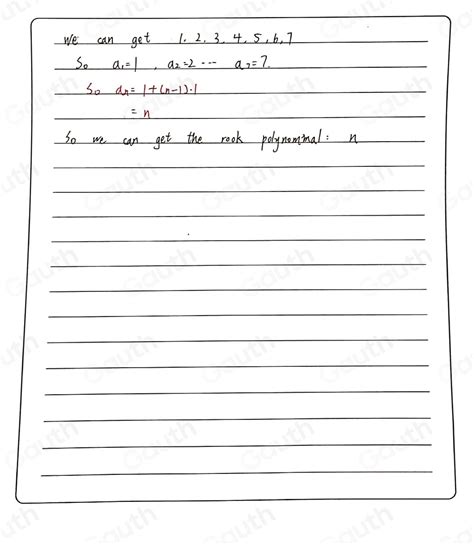 we can get 1. 2. 3. 4. 5. 6. 7
So a₁=1 , a₂=2 ··· a₇=7.
So aₙ= 1+(n-1)·1
= n
So we can get the rook polynominal: n